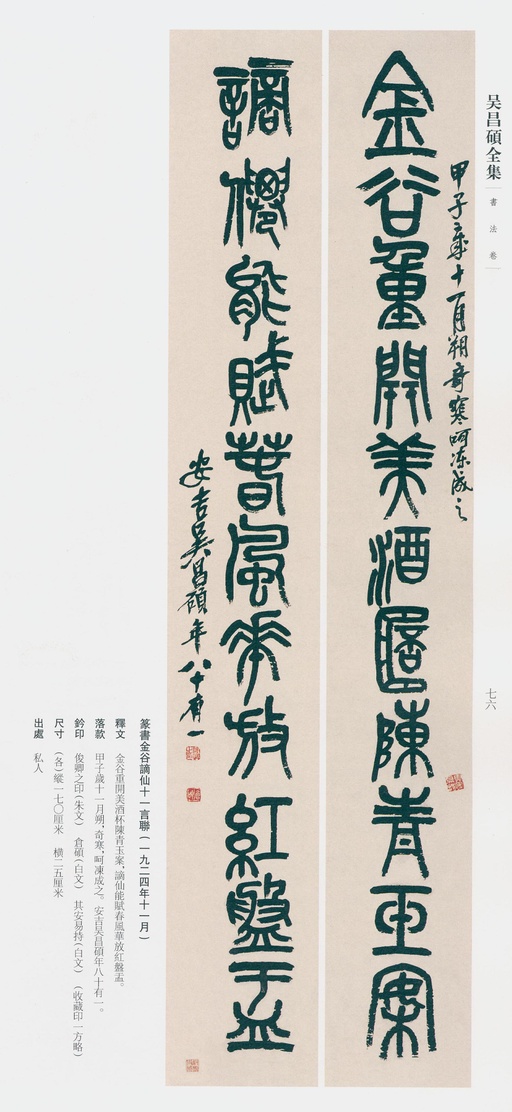 吴昌碩全集
書法卷
七六
金谷重開美酒桮陳青玉案
甲子歲十一月朔奇寒呵凍成之
謫僊能賦萅風華放紅盤盂
安吉吴昌碩年八十有一
篆書金谷謫仙十一言聯(一九二四年十一月)
釋文 金谷重開美酒杯陳青玉案,謫仙能賦春風華放紅盤盂。
落款 甲子歲十一月朔,奇寒,呵凍成之。安吉吴昌碩年八十有一。
鈐印 俊卿之印(朱文) 倉碩(白文) 其安易持(白文) (收藏印一方略)
尺寸 (各)縱一七〇厘米 横二五厘米
出處 私人